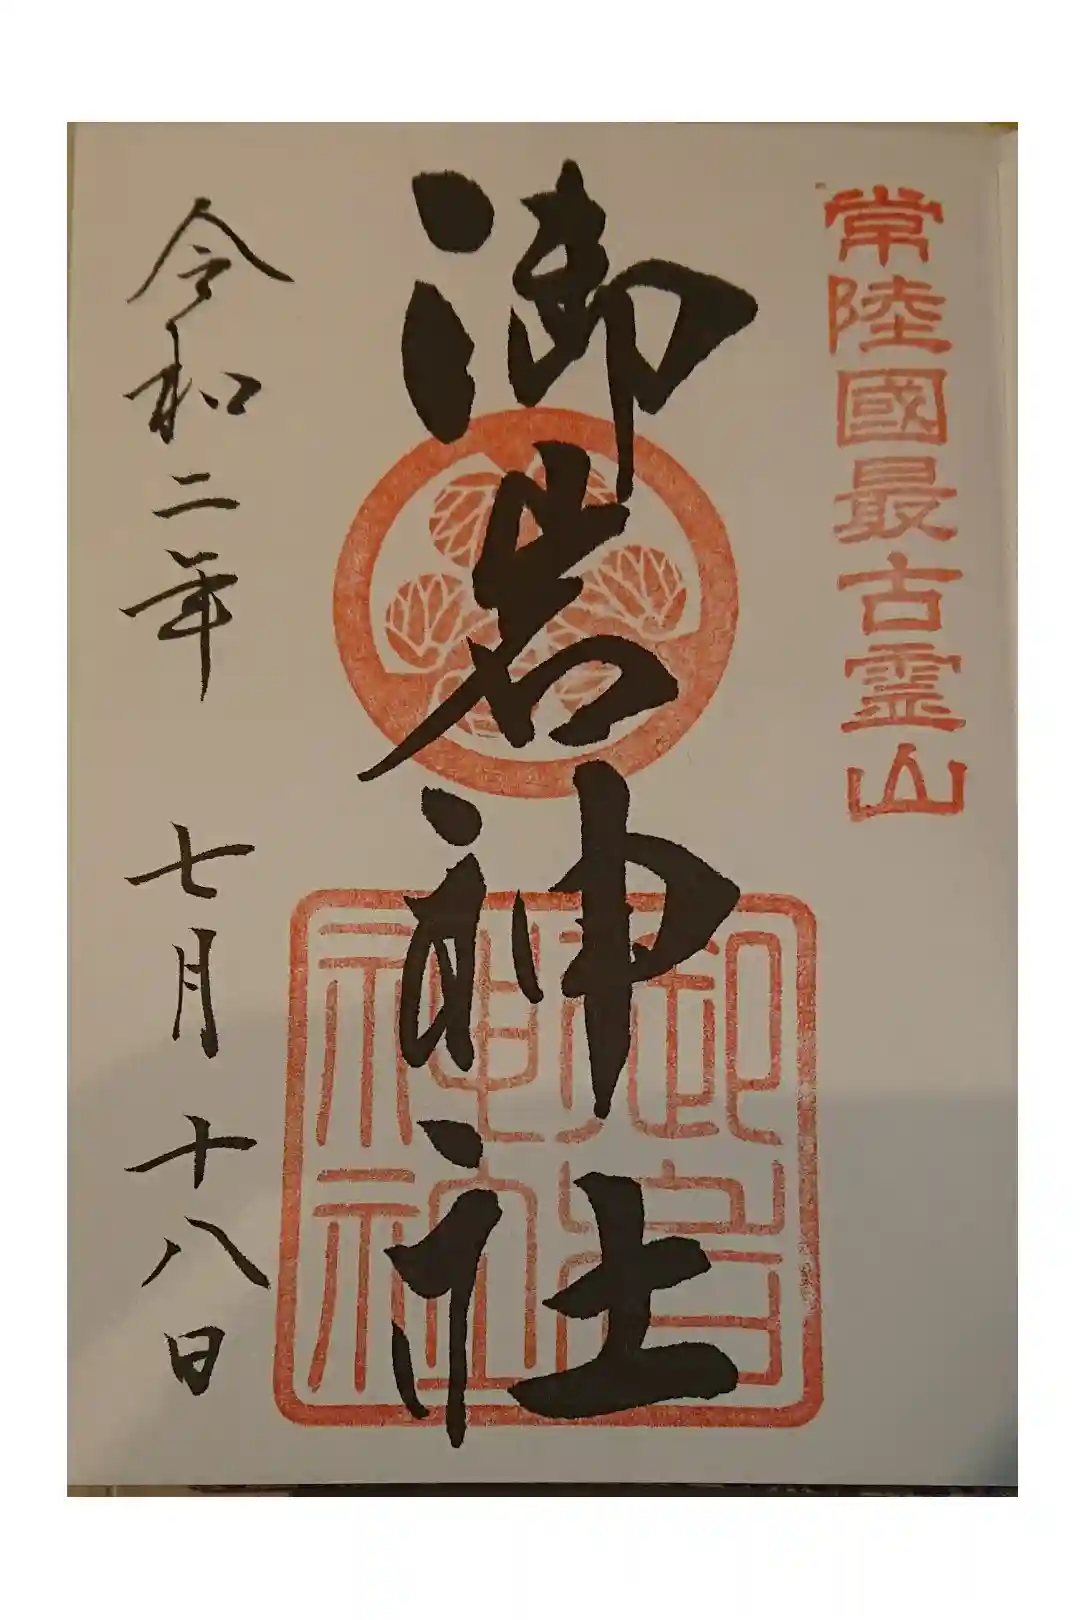 常陸國最古霊山
御岩神社
御岩神社
令和二年 七月十八日